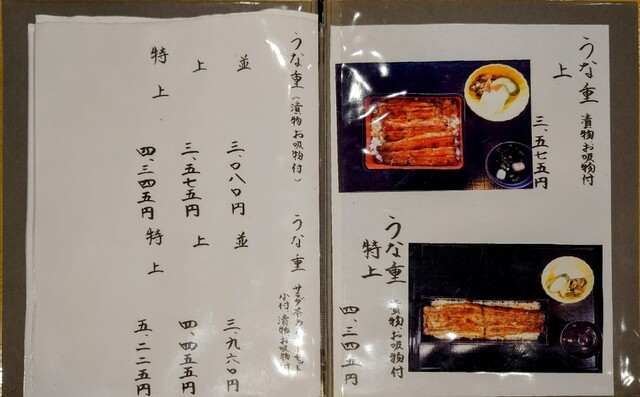 うな重 漬物、お吸物付
上
三、五七五円
うな重 漬物、お吸物付
特上
四、三四五円
うな重（漬物、お吸物付）
並 三、〇八〇円
上 三、五七五円
特上 四、三四五円
うな重
小付、漬物、お吸物付
並 三、九六〇円
上 四、四五五円
特上 五、二二五円